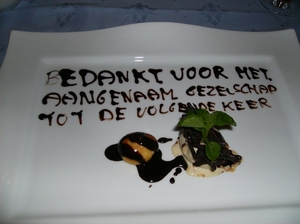 BEDANKT VOOR HET
AANGENAAM GEZELSCHAP
TOT DE VOLGENDE KEER